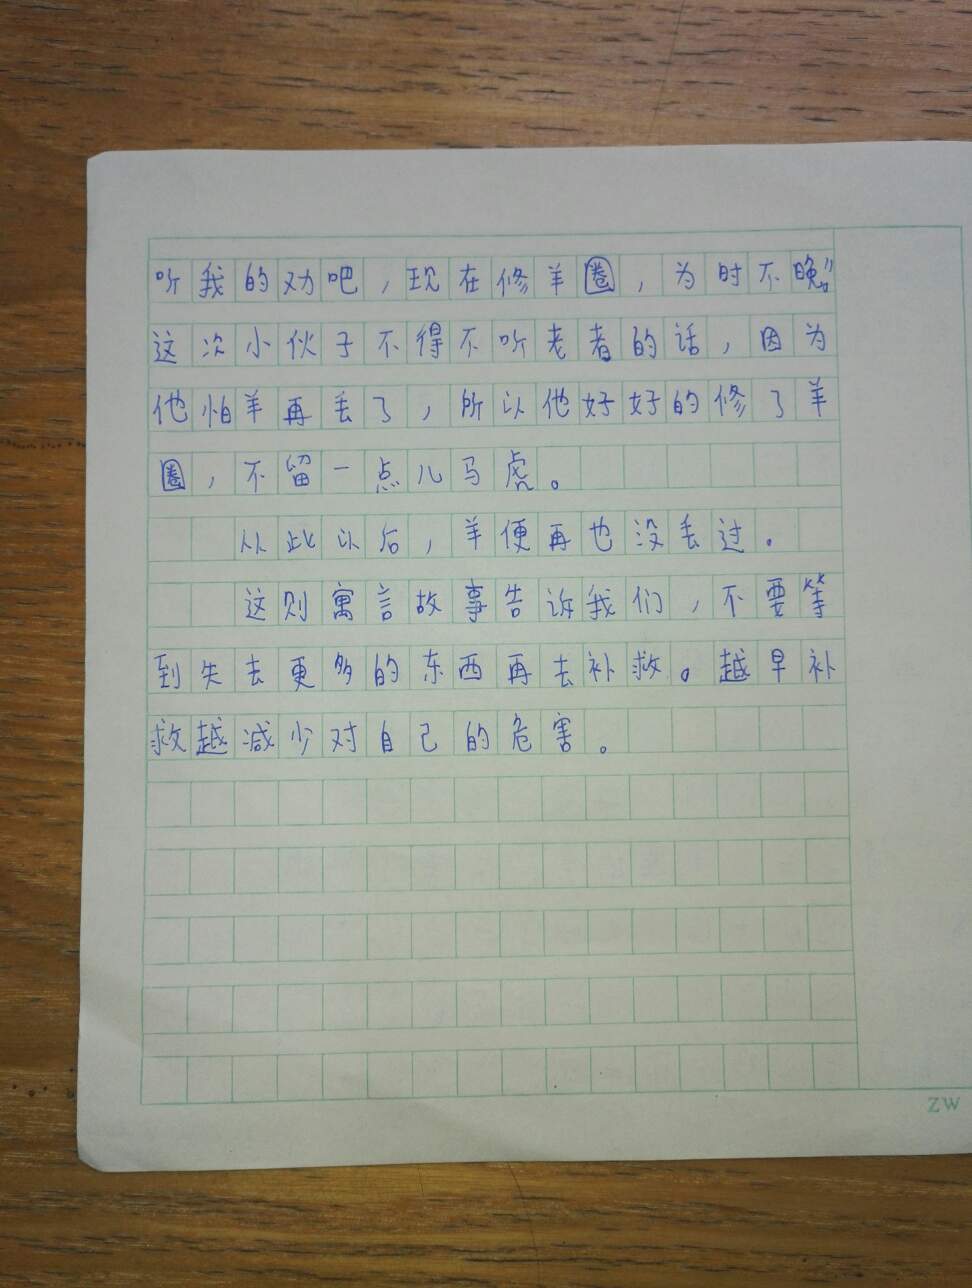 听我的劝吧，现在修羊圈，为时不晚。”
这次小伙子不得不听老者的话，因为
他怕羊再丢了，所以他好好的修了羊
圈，不留一点儿马虎。
从此以后，羊便再也没丢过。
这则寓言故事告诉我们，不要等
到失去更多的东西再去补救。越早补
救越减少对自己的危害。
ZW